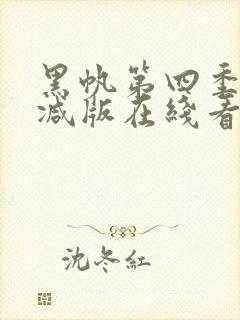 黑帆第四季
减版在綫看
沈冬紅